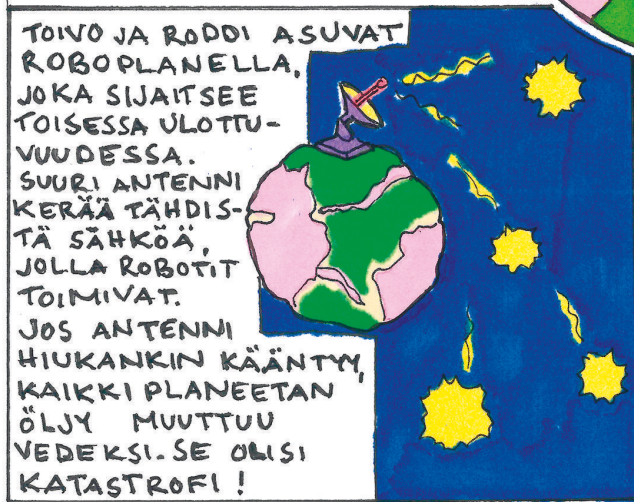 TOIVO JA RODDI ASUVAT
ROBOPLANELLA,
JOKA SIJAITSEE
TOISESSA ULOTTU-
VUUDESSA.
SUURI ANTENNI
KERÄÄ TÄHDIS-
TÄ SÄHKÖÄ,
JOLLA ROBOTIT
TOIMIVAT.
JOS ANTENNI
HIUKANKIN KÄÄNTYY,
KAIKKI PLANEETAN
ÖLJY MUUTTUU
VEDEKSI. SE OLISI
KATASTROFI!